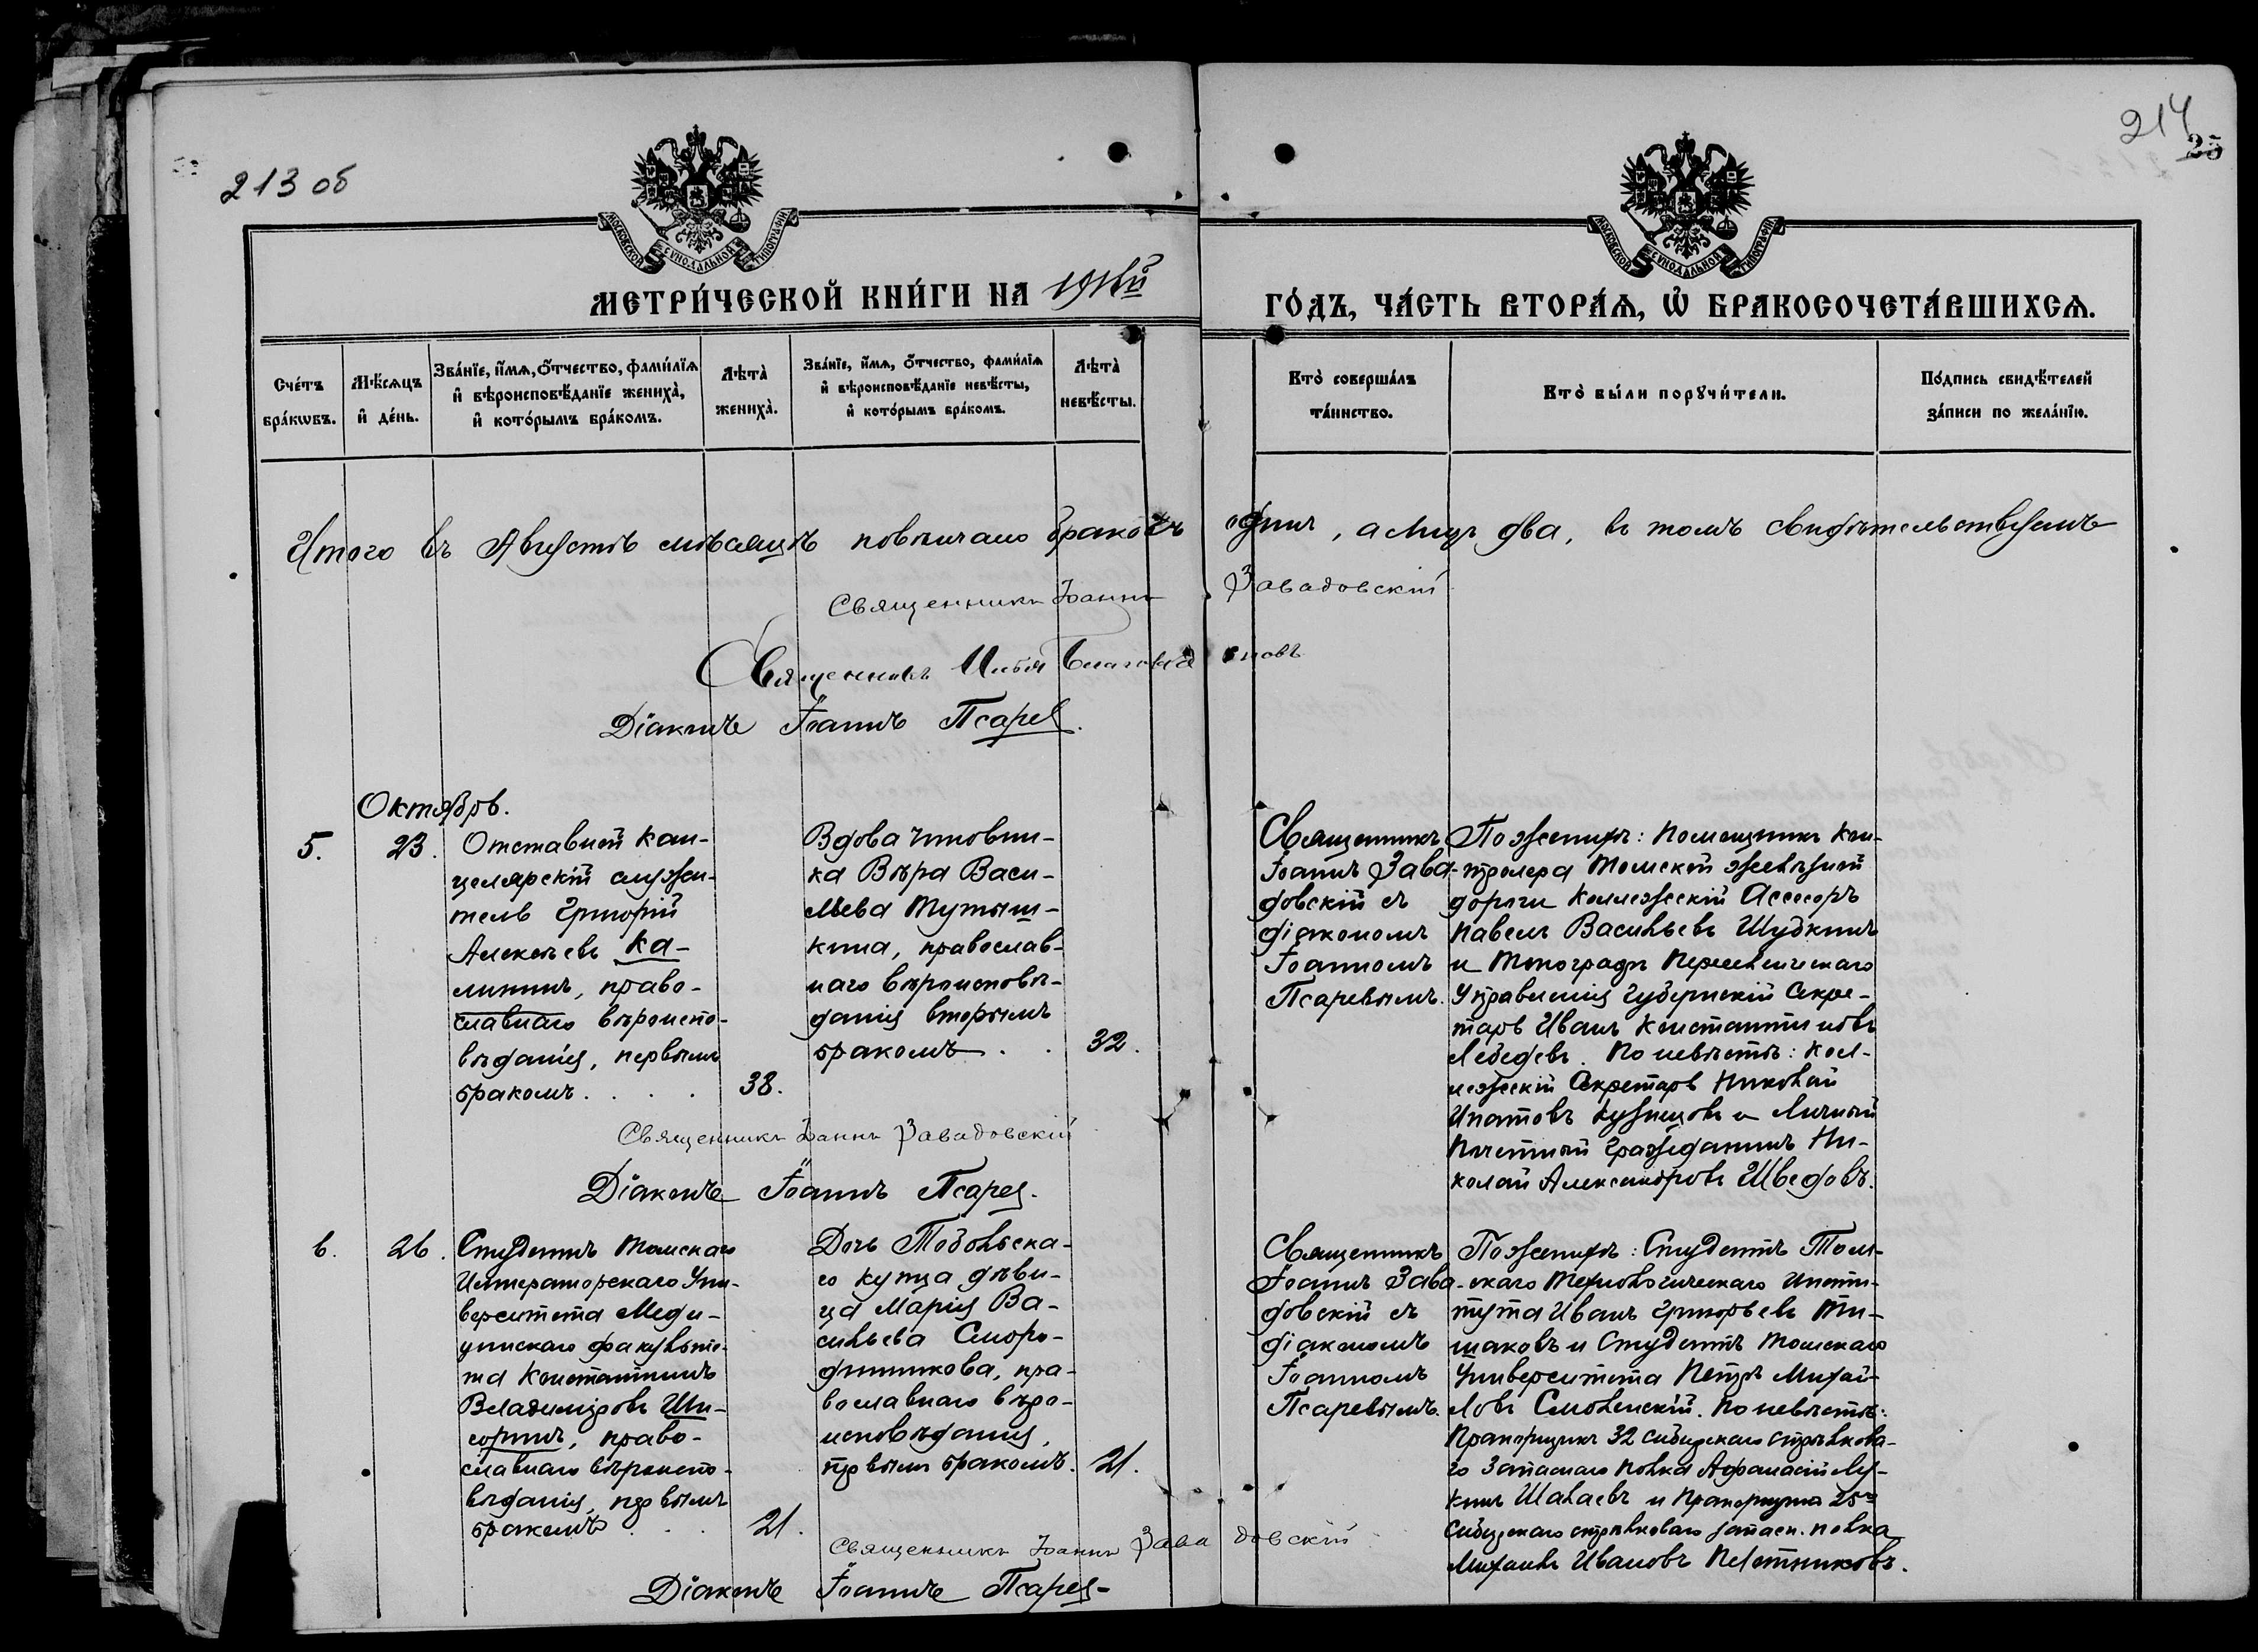 213 об
214
25
МОСКОВСКОЙ СѴНОДАЛЬНОЙ ТИПОГРАФІИ
МОСКОВСКОЙ СѴНОДАЛЬНОЙ ТИПОГРАФІИ
МЕТРИ́ЧЕСКОЙ КНИ́ГИ НА
ГО́ДЪ, ЧА́СТЬ ВТОРА́Ѧ, Ѡ҆ БРАКОСОЧЕТА́ВШИХСѦ.
Сче́тъ бра́кѡвъ.
Мѣ́сѧцъ и҆ де́нь.
Зва́нїе, и҆́мѧ, ѻ҆́тчество, фами́лїѧ и҆ вѣроисповѣ́данїе жениха̀, и҆ кото́рымъ бра́комъ.
Лѣта̀ жениха̀.
Зва́нїе, и҆́мѧ, ѻ҆́тчество, фами́лїѧ и҆ вѣроисповѣ́данїе невѣ́сты, и҆ кото́рымъ бра́комъ.
Лѣта̀ невѣ́сты.
Кто̀ соверша́лъ та́инство.
Кто̀ бы́ли порꙋчи́тели.
По́дпись свидѣ́телей за́писи по жела́нїю.
Итого въ Августѣ мѣсяцѣ повѣнчано браковъ одинъ, а лицъ два, въ томъ свидѣтельствуемъ
Священникъ Іоаннъ Завадовскій
Священникъ Илья
Діаконъ Іоаннъ Псарев.
Октябрь.
5.
23.
Отставной кан-
целярскій служи-
тель Григорій
Алексѣевъ Ка-
лининъ, право-
славнаго вѣроиспо-
вѣданія, первымъ
бракомъ . . . .
38.
Вдова чиновни-
ка Вѣра Васи-
льева Тутыш-
кина, православ-
наго вѣроисповѣ-
данія вторымъ
бракомъ . .
32.
Священникъ
Іоаннъ Зава-
довскій съ
діакономъ
Іоанномъ
Псаревымъ.
По женихѣ: Помощникъ кон-
тролера Томской желѣзной
дороги Коллежскій Ассесоръ
Павелъ Васильевъ Шубкинъ
и Топографъ Переселенческаго
Управленія Губернскій Секре-
тарь Иванъ Константиновъ
Лебедевъ. По невѣстѣ: Кол-
лежскій Секретарь Николай
Ипатовъ Кузнецовъ и Личный
Почетный Гражданинъ Ни-
колай Александровъ Шведовъ.
Священникъ Іоаннъ Завадовскій
Діаконъ Іоаннъ Псарев.
6.
26.
Студентъ Томскаго
Императорскаго Уни-
верситета Меди-
цинскаго факульте-
та Константинъ
Владиміровъ Ши-
соринъ, право-
славнаго вѣроиспо-
вѣданія, первымъ
бракомъ . . .
21.
Дочь Тобольска-
го купца дѣви-
ца Марія Ва-
сильева Сморо-
динникова, пра-
вославнаго вѣро-
исповѣданія,
первымъ бракомъ.
21.
Священникъ
Іоаннъ Зава-
довскій съ
діакономъ
Іоанномъ
Псаревымъ.
По женихѣ: Студентъ Том-
скаго Технологическаго Инсти-
тута Иванъ Григорьевъ Ти-
шаковъ и Студентъ Томскаго
Университета Петръ Михай-
ловъ Смоленскій. По невѣстѣ:
Прапорщикъ 32 Сибирскаго стрѣлкова-
го Запаснаго полка Афанасій
Шалаевъ и Прапорщикъ 25го
Сибирскаго стрѣлковаго запасн. полка
Михаилъ Ивановъ
Священникъ Іоаннъ Завадовскій
Діаконъ Іоаннъ Псарев